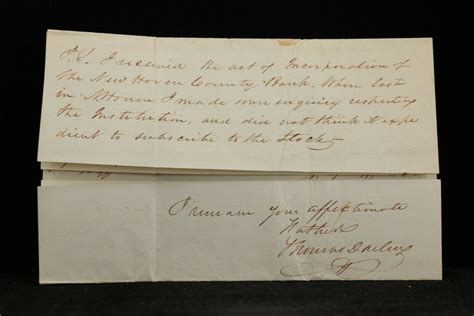 P.S. I received the act of Incorporation of
the New Haven County Bank. When last
in N Haven I made some enquiry respecting
the Institution, and did not think it expe
dient to subscribe to the Stock
I remain your affectionate
Father
Thomas Darling